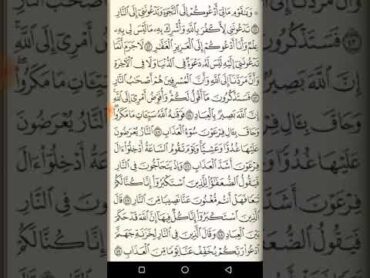 وَيَٰقَوْمِ مَا لِىٓ أَدْعُوكُمْ إِلَى ٱلنَّجَوٰةِ وَتَدْعُونَنِىٓ إِلَى ٱلنَّارِ
٤١ تَدْعُونَنِى لِأَكْفُرَ بِٱللَّهِ وَأُشْرِكَ بِهِۦ مَا لَيْسَ لِى بِهِۦ
عِلْمٌ وَأَنَا۠ أَدْعُوكُمْ إِلَى ٱلْعَزِيزِ ٱلْغَفَّٰرِ ٤٢ لَا جَرَمَ أَنَّمَا
تَدْعُونَنِىٓ إِلَيْهِ لَيْسَ لَهُۥ دَعْوَةٌ فِى ٱلدُّنْيَا وَلَا فِى ٱلْءَاخِرَةِ
وَأَنَّ مَرَدَّنَآ إِلَى ٱللَّهِ وَأَنَّ ٱلْمُسْرِفِينَ هُمْ أَصْحَٰبُ ٱلنَّارِ
٤٣ فَسَتَذْكُرُونَ مَآ أَقُولُ لَكُمْ وَأُفَوِّضُ أَمْرِىٓ إِلَى ٱللَّهِ
إِنَّ ٱللَّهَ بَصِيرٌۢ بِٱلْعِبَادِ ٤٤ فَوَقَىٰهُ ٱللَّهُ سَيِّـَٔاتِ مَا مَكَرُوا۟
وَحَاقَ بِـَٔالِ فِرْعَوْنَ سُوٓءُ ٱلْعَذَابِ ٤٥ ٱلنَّارُ يُعْرَضُونَ
عَلَيْهَا غُدُوًّا وَعَشِيًّا وَيَوْمَ تَقُومُ ٱلسَّاعَةُ أَدْخِلُوٓا۟ ءَالَ
فِرْعَوْنَ أَشَدَّ ٱلْعَذَابِ ٤٦ وَإِذْ يَتَحَآجُّونَ فِى ٱلنَّارِ
فَيَقُولُ ٱلضُّعَفَٰٓؤُا۟ لِلَّذِينَ ٱسْتَكْبَرُوٓا۟ إِنَّا كُنَّا لَكُمْ
تَبَعًا فَهَلْ أَنتُم مُّغْنُونَ عَنَّا نَصِيبًا مِّنَ ٱلنَّارِ ٤٧ قَالَ
ٱلَّذِينَ ٱسْتَكْبَرُوٓا۟ إِنَّا كُلٌّ فِيهَآ إِنَّ ٱللَّهَ قَدْ حَكَمَ
بَيْنَ ٱلْعِبَادِ ٤٨ وَقَالَ ٱلَّذِينَ فِى ٱلنَّارِ لِخَزَنَةِ جَهَنَّمَ
ٱدْعُوا۟ رَبَّكُمْ يُخَفِّفْ عَنَّا يَوْمًا مِّنَ ٱلْعَذَابِ ٤٩